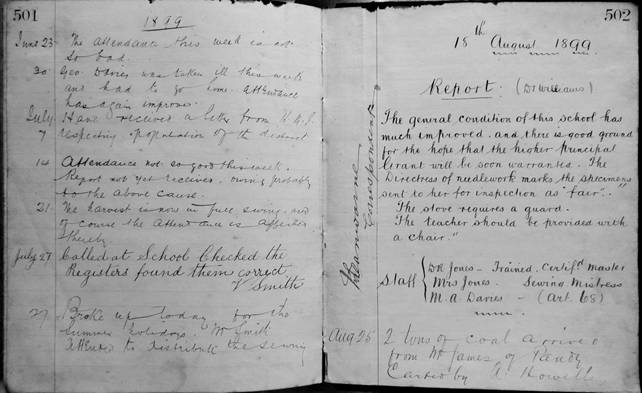 501
1899
June 23 The attendance this week is not
so bad.
30 Geo. Davies was taken ill this week
and had to go home. Attendance
has again improved.
July Have received a letter from H.M.I.
7 respecting population of the district
14 Attendance not so good this week.
Report not yet received, owing probably
to the above cause.
21 The harvest is now in full swing, and
of course the attendance is affected
thereby
July 27 Called at School Checked the
Registers found them correct
V Smith
27 Broke up today for the
Summer holidays. Mr Smith
attended to distribute the sewing
502
18th August 1899
Report. (Dr Williams)
The general condition of this school has
much improved. and there is good ground
for the hope that the higher Principal
Grant will be soon warranted. The
Directress of needlework marks the specimens
sent to her for inspection as "fair"."
"The stove requires a guard.
"The teacher should be provided with
a chair."
Correspondent
Staff { D R Jones - Trained, Certifd Master
Mrs Jones. Sewing Mistress
M. A. Davies - (Art. 68)
Aug 25 2 tons of coal arrived
from Mr James of
Carted by A. Howells